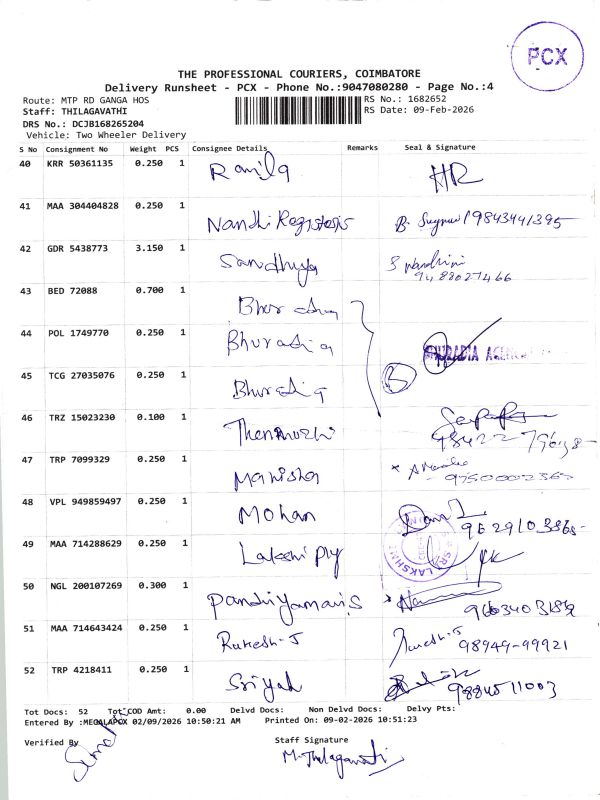 PCX
THE PROFESSIONAL COURIERS, COIMBATORE
Delivery Runsheet - PCX - Phone No.:9047080280 - Page No.:4
Route: MTP RD GANGA HOS
RS No.: 1682652
Staff: THILAGAVATHI
RS Date: 09-Feb-2026
DRS No.: DCJB168265204
Vehicle: Two Wheeler Delivery
S No Consignment No Weight PCS Consignee Details Remarks Seal & Signature
40 KRR 50361135 0.250 1 Ranila HR
41 MAA 304404828 0.250 1 Nandhi Registosis
42 GDR 5438773 3.150 1 Sandhiya 9488027466
43 BED 72088 0.700 1
44 POL 1749770 0.250 1 Bhuradia
45 TCG 27035076 0.250 1 Bhuradia 5
46 TRZ 15023230 0.100 1
47 TRP 7099329 0.250 1 Manisha
48 VPL 949859497 0.250 1 Mohan
49 MAA 714288629 0.250 1 Lakshi Ply
50 NGL 200107269 0.300 1
51 MAA 714643424 0.250 1 Rukesh-J 98949-99921
52 TRP 4218411 0.250 1 Sriyah
Tot Docs: 52 Tot COD Amt: 0.00 Delvd Docs: Non Delvd Docs: Delvy Pts:
Entered By :MEGALAPCX 02/09/2026 10:50:21 AM Printed On: 09-02-2026 10:51:23
Verified By
Staff Signature
M. Thilagavathi